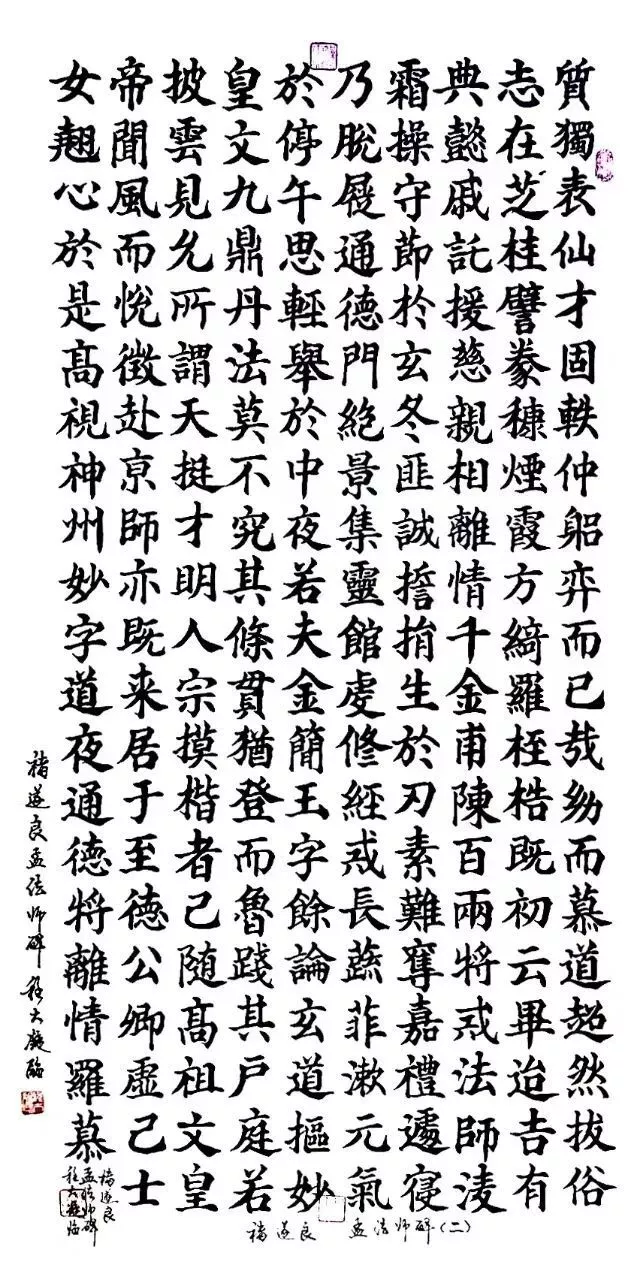 質獨表仙才固軼仲躳弈而已㦲幼而慕道超然拔俗
志在芝桂譬豢穅煙霞方綺羅桎梏既初云畢迨吉有
典懿戚託援慈親相離情千金甫陳百兩將戒法師凌
霜操守莭於玄冬匪誠擔揹生於刃素難奪嘉禮遽寝
乃脫屐通德門絕景集靈館虔修經戒長蔬菲漱元氣
於停午思輕舉於中夜若夫金簡玉字餘論玄道摳妙
皇文九鼎丹法莫不究其條貫猶登而魯踐其户庭若
披雲見允所謂天挺才明人宗摸楷者己随髙祖文皇
帝聞風而悅徵赴京師亦既来居于至德公卿虛己士
女翹心於是髙視神州妙字道夜通德将離情羅慕
褚遂良孟法师碑 程大凝臨
褚遂良
孟法师碑
程大凝临
褚遂良 孟法师碑(二)